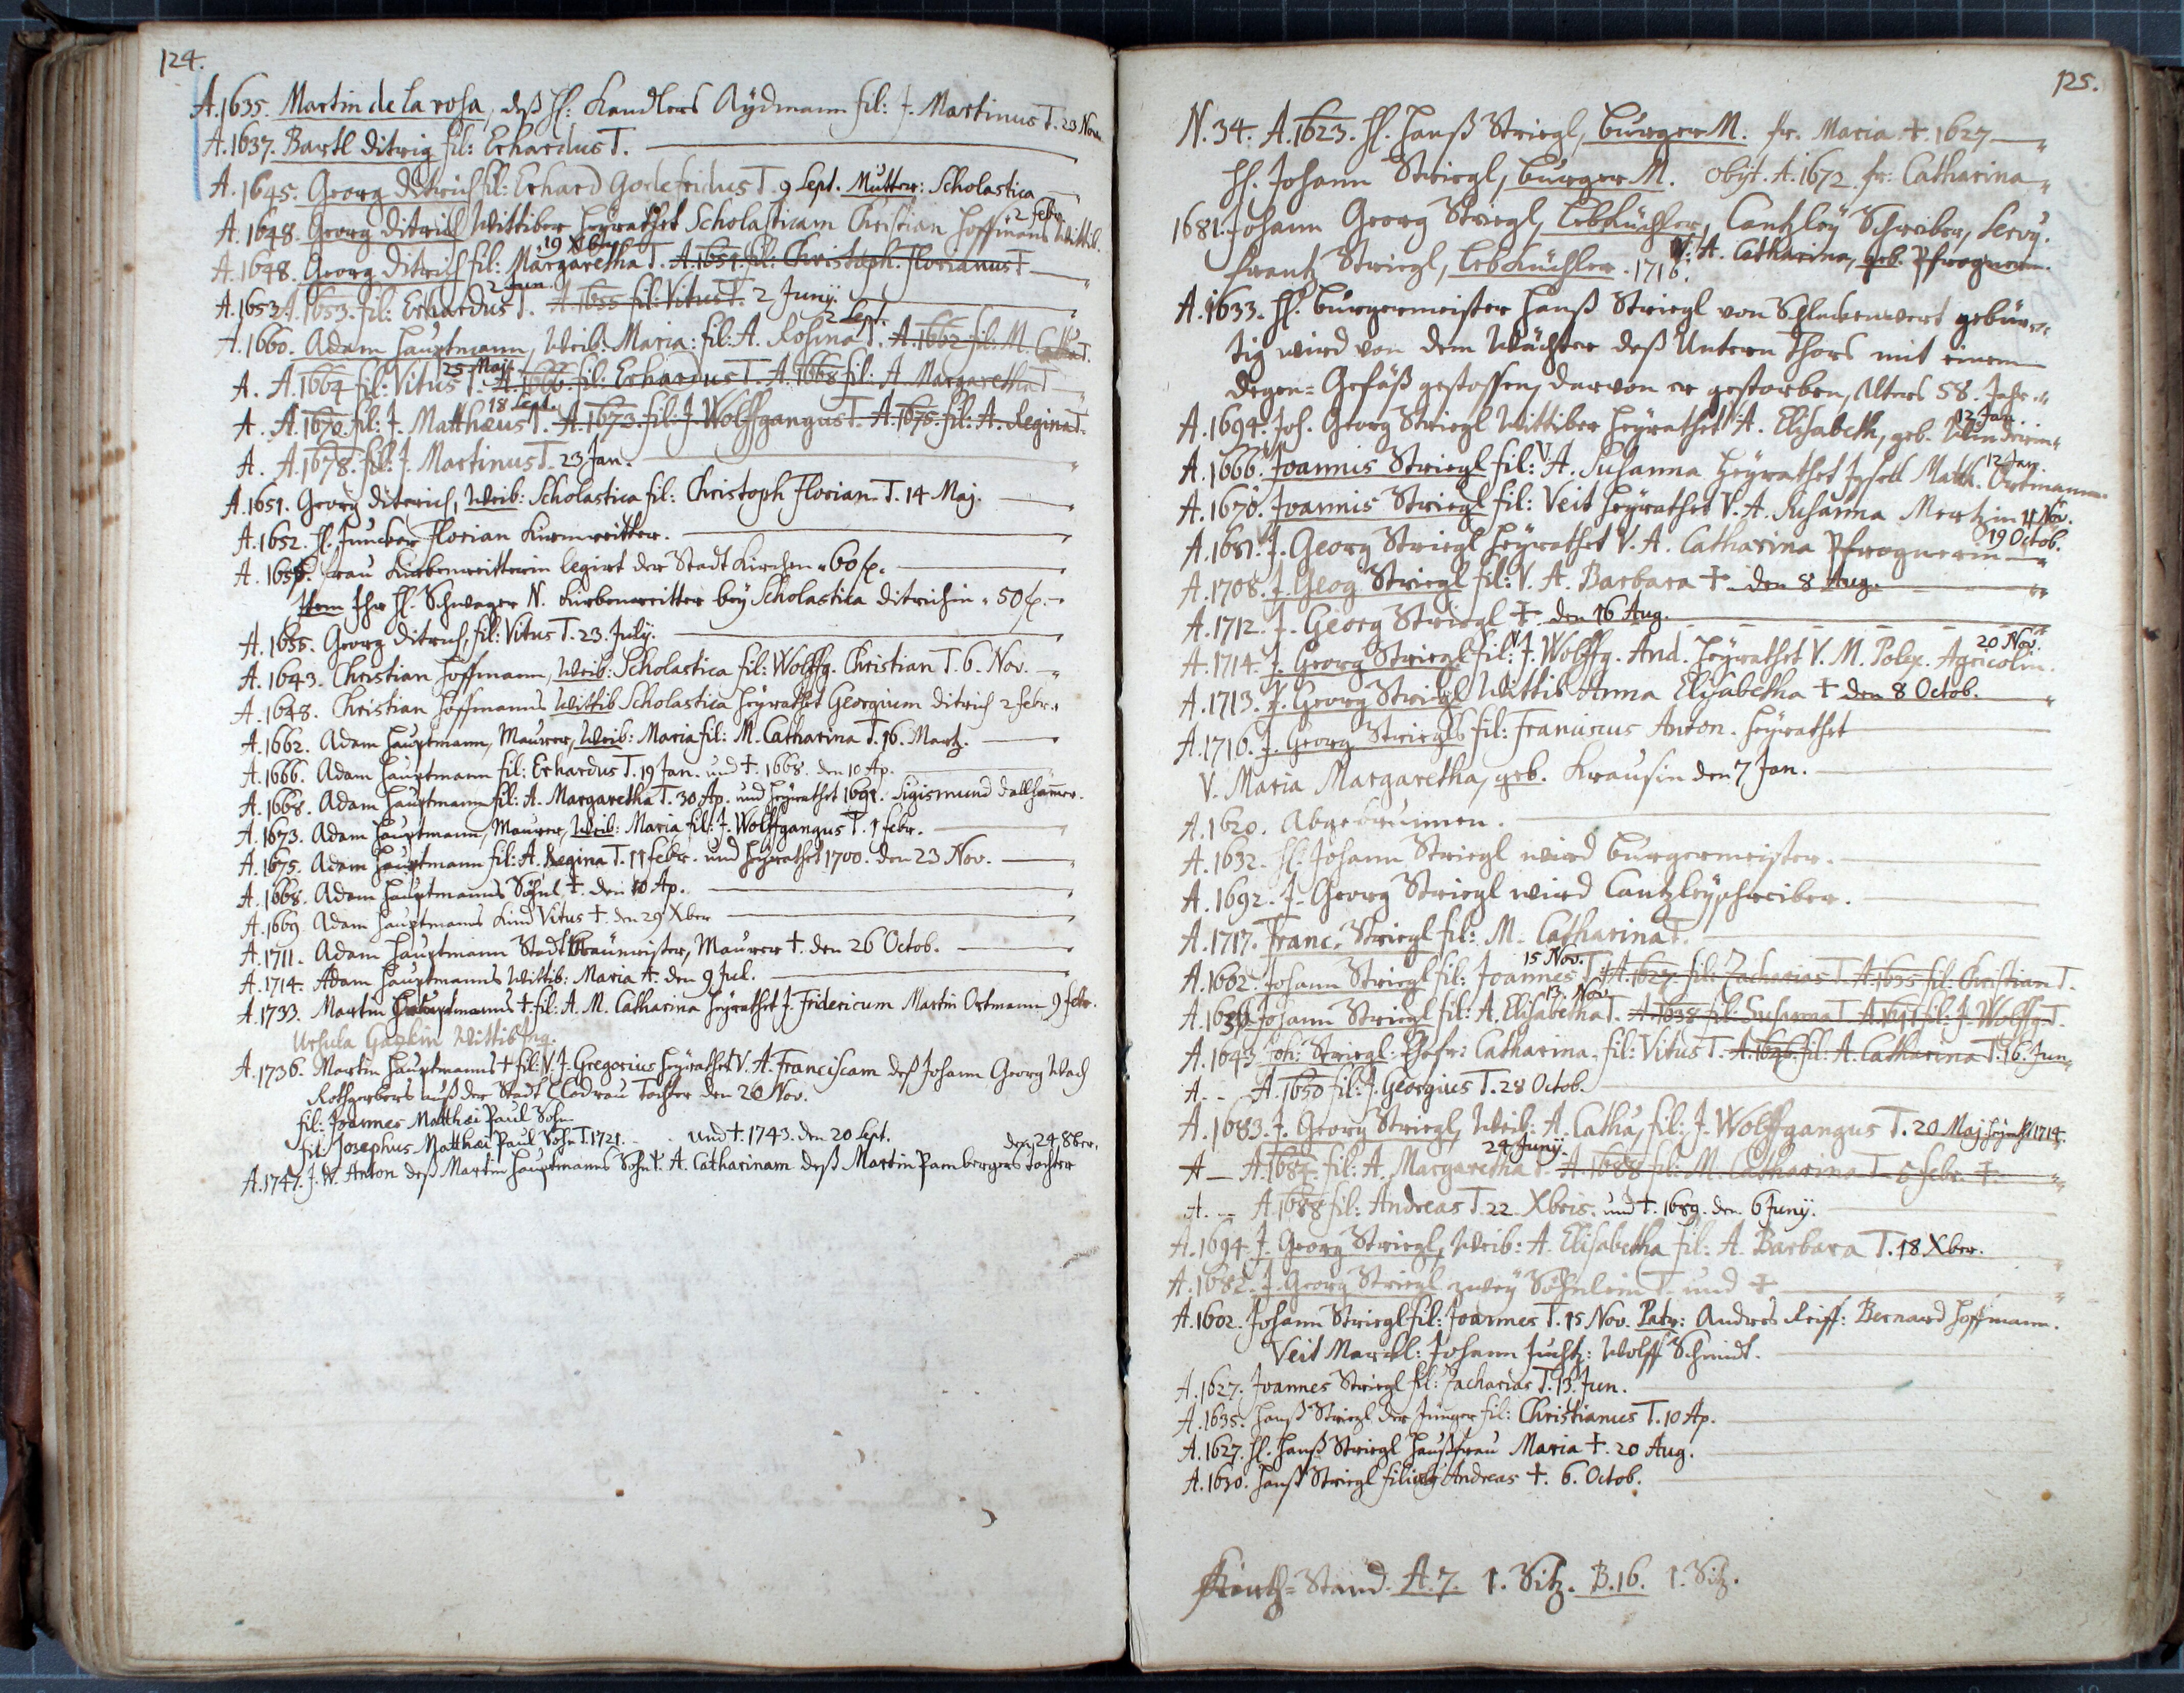 124.
A. 1635. Martin de la rosa, deß H: Kandlers Aydmann fil: J. Martinus T. 23 Nov.
A. 1637. Bartl Ditrig fil: Erhardus T.
A. 1645. Georg Ditrich fil: Erhard Godefridus T. 9 Sept. Mutter: Scholastica
A. 1648. Georg Ditrich Wittiber heyrathet Scholasticam Christian Hoffmans Wittib. 2 Febr.
A. 1648. Georg Ditrich fil: Margaretha T. 19 Xber A. 1651. fil: Christoph. Florianus T
A. 1653. A. 1653. fil: Erhardus T. 2 Jun. A. 1655 fil: Vitus T. 2 Junij.
A. 1660. Adam Hauptmann, Weib. Maria: fil: A. Rosina T. 2 Sept. A. 1662 fil: M. Catha T.
A. A. 1664 fil: Vitus T. 25 Maji A. 1666. fil: Erhardus T. A. 1668 fil: A Margaretha T
A. A. 1670. fil: J. Matthæus T. 18 Sept. A. 1673. fil: J Wolffgangus T. A. 1675. fil: A. Regina T.
A. A. 1678. fil: J. Martinus T. 23 Jan.
A. 1651. Georg Diterich, Weib: Scholastica fil: Christoph Florian T. 14 Maj.
A. 1652. H. Juncker Florian
A. 165 . Frau legirt der Stadt Kirchen 60 f.
Item Ihr H. Schwager N. bey Scholastica Ditrichin 50 f.
A. 1655. Georg Ditrich, fil: Vitus T. 23. Julij.
A. 1643. Christian Hoffmann, Weib: Scholastica fil: Wolffg. Christian T. 6. Nov.
A. 1648. Christian Hoffmanns Wittib Scholastica heyrathet Georgium Ditrich 2 Febr.
A. 1662. Adam Hauptmann, Maurer, Weib: Maria fil: M. Catharina T. 16. Martz.
A. 1666. Adam Hauptmann fil: Erhardus T. 19 Jan. und †. 1668. den 10 Ap.
A. 1668. Adam Hauptmann fil: A. Margaretha T. 30 Ap. und heyrathet 1691. Sigismund Dallhammer.
A. 1673. Adam Hauptmann, Maurer, Weib: Maria fil: J. Wolffgangus T. 1 Febr.
A. 1675. Adam Hauptmann fil: A. Regina T. 11 Febr. und heyrathet 1700. den 23 Nov.
A. 1668. Adam Hauptmanns Söhnl †. den 10 Ap.
A. 1669. Adam Hauptmanns Kind Vitus †. den 29 Xber
A. 1711. Adam Hauptmann Stadt Baumeister, Maurer †. den 26 Octob.
A. 1714. Adam Hauptmanns Wittib: Maria †. den 9 Jul.
A. 1733. Martin Hauptmanns † fil: A. M. Catharina heyrathet J. Fridericum Martin Ortmann 9 Febr.
Ursula Wittib
A. 1736. Martin Hauptmanns † fil: V. J. Gregorius heyrathet V. A. Franciscam deß Johann Georg Wach
Rothgerbers auß der Stadt Cladrau Tochter den 26 Nov.
fil: Joannes Matthæi Paul Sohn
fil: Josephus Matthæi Paul Sohn T. 1721. und †. 1743. den 20 Sept. den 24 8ber.
A. 1747. J. W. Anton deß Martin Hauptmanns Sohn †. A. Catharinam deß Martin Pambergers Tochter
125.
N. 34. A. 1623. H. Hanß Striegl, Burger M. fr. Maria †. 1627
H. Johann Striegl, Burger M. obijt. A. 1672. fr: Catharina
1681. Johann Georg Striegl, Lebküchler, Cantzley Schreiber,
Frantz Striegl, Lebküchler. 1716. W: A. Catharina, geb. Pfrognerin.
A. 1633. H. Burgermeister Hanß Striegl von Schlackenwert gebür-
tig wird von dem Wächter deß Untern Thors mit einem
Degen-Gefäß gestossen, darvon er gestorben, Alters 58. Jahr
A. 1694. Joh. Georg Striegl Wittiber heyrathet A. Elisabeth, geb. 12 Jan.
A. 1666. Joannis Striegl fil: V. A. Susanna heyrathet Matth. Ortmann 12 Jan.
A. 1670. Joannis Striegl fil: Veit heyrathet V. A. Susanna Mertzin 11 Nov.
A. 1681. J. Georg Striegl heyrathet V. A. Catharina Pfrognerin 19 Octob.
A. 1708. J. Geog Striegl fil: V. A. Barbara † den 8 Aug.
A. 1712. J. Georg Striegl †. den 16 Aug.
A. 1714. J. Georg Striegl fil: V. J. Wolffg. And. heyrathet V. M. Polex. Agricolin. 20 Nov.
A. 1713. J. Georg Striegl Wittib Anna Elisabetha † den 8 Octob.
A. 1716. J. Georg Striegls fil: Franciscus Anton. heyrathet
V. Maria Margaretha, geb. Krausin den 7 Jan.
A. 1620. Abgebrunnen.
A. 1632. H: Johann Striegl wird Burgermeister.
A. 1692. J. Georg Striegl wird Cantzleyschreiber.
A. 1717. Franc. Striegl fil: M. Catharina T.
A. 1602. Johann Striegl fil: Joannes T. 15 Nov. A. 1627. fil: Zacharias T. A. 1635 fil: Christian T.
A. 1636. Johann Striegl fil: A. Elisabetha T. 13. Nov. A. 1638 fil: Susanna T. A. 1641 fil: J. Wolffg. T.
A. 1643. Joh: Striegl: Ehefr: Catharina. fil: Vitus T. A. 1646. fil: A. Catharina T. 16. Jun.
A. - A. 1650 fil: J. Georgius T. 28 Octob.
A. 1683. J. Georg Striegl, Weib: A. Catha, fil: J. Wolffgangus T. 20 Maj heyrath 1714.
A - A. 1684. fil: A. Margaretha T. 24 Junij. A. 1688 fil: M. Catharina T. 5 Febr. †.
A. - A. 1688 fil: Andreas T. 22. Xbris. und †. 1689. den 6 Junij.
A. 1694. J. Georg Striegl, Weib: A. Elisabetha fil: A. Barbara T. 18 Xber.
A. 1682. J. Georg Striegl zwey Söhnlein T. und †
A. 1602. Johann Striegl fil: Joannes T. 15 Nov. Patr: Andres Reiff: Bernard Hoffmann.
Veit Marckl: Johann Wolff Schmidt.
A. 1627. Joannes Striegl fil: Zacharias T. 13. Jun.
A. 1635. Hanß Striegl der Jünger fil: Christianus T. 10 Ap.
A. 1627. H. Hanß Striegl Haußfrau Maria †. 20 Aug.
A. 1630. Hanß Striegl filiolus Andreas †. 6. Octob.
Kirch-Stand. A. 7. 1. Sitz. B. 16. 1. Sitz.